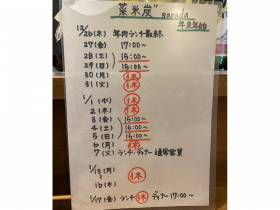 菜米炭" sarada
年末年始
12/26(木) 年内ランチ最終
27(金) 17:00〜
28(土) 15:00〜
29(日) 15:00〜
30(月) 休
31(火) 休
1/1(水) 休
2(木) 休
3(金) 15:00〜
4(土) 15:00〜
5(日) 15:00〜
6(月) 休
7(火) ランチ・ディナー通常営業
1/13(月)
〜 休
16(木)
1/17(金) ランチ休 ディナー17:00〜